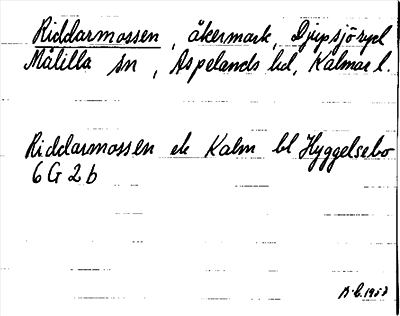 Riddarmossen, åkermark, Djupsjöryd
Målilla sn, Aspelands hd, Kalmar l.
Riddarmossen ek Kalm bl Hyggelsebo
6G2b